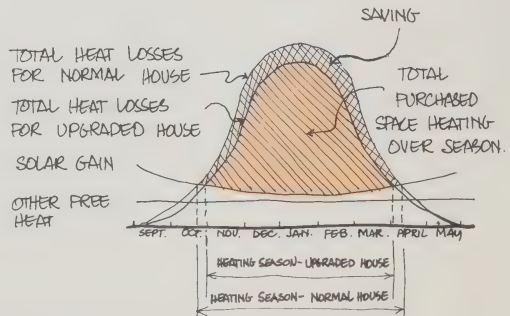 SAVING
TOTAL HEAT LOSSES
FOR NORMAL HOUSE
TOTAL HEAT LOSSES
FOR UPGRADED HOUSE
SOLAR GAIN
OTHER FREE
HEAT
TOTAL
PURCHASED
SPACE HEATING
OVER SEASON.
SEPT. OCT. NOV. DEC. JAN. FEB. MAR. APRIL MAY
HEATING SEASON- UPGRADED HOUSE
HEATING SEASON- NORMAL HOUSE